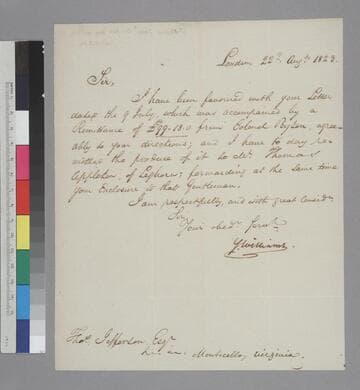 London 22d. Augt. 1823.
Sir,
I have been favored with your Letter
dated the 9 July, which was accompanied by a
Remittance of £99.18.0 from Colonel Peyton, agree-
ably to your directions; and I have to day re-
mitted the produce of it to Mr. Thomas
Appleton, of Leghorn; forwarding at the same time
your Enclosure to that Gentleman.
I am respectfully, and with great Considn.
Sir,
Your obedt. Servt.
Williams
Thos. Jefferson Esqr.
Monticello, Virginia.